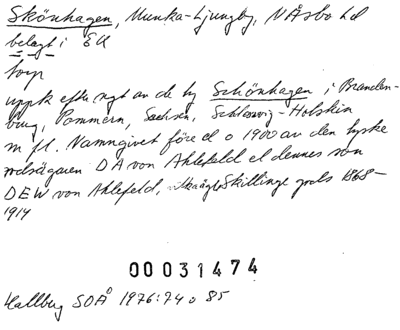 Skönhagen, Munka-Ljungby, N Åsbo hd
belagt i EK
torp
uppk efter ngt av de ty Schönhagen i Branden-
burg, Pommern, Sachsen, Schleswig-Holstein
m fl. Namngivet före el o 1900 av den tyske
godsägaren DA von Ahlefeld el dennes son
DEW von Ahlefeld, Skillinge gods 1868-
1914
00031474
Hallberg SOÅ 1976:74 o 85